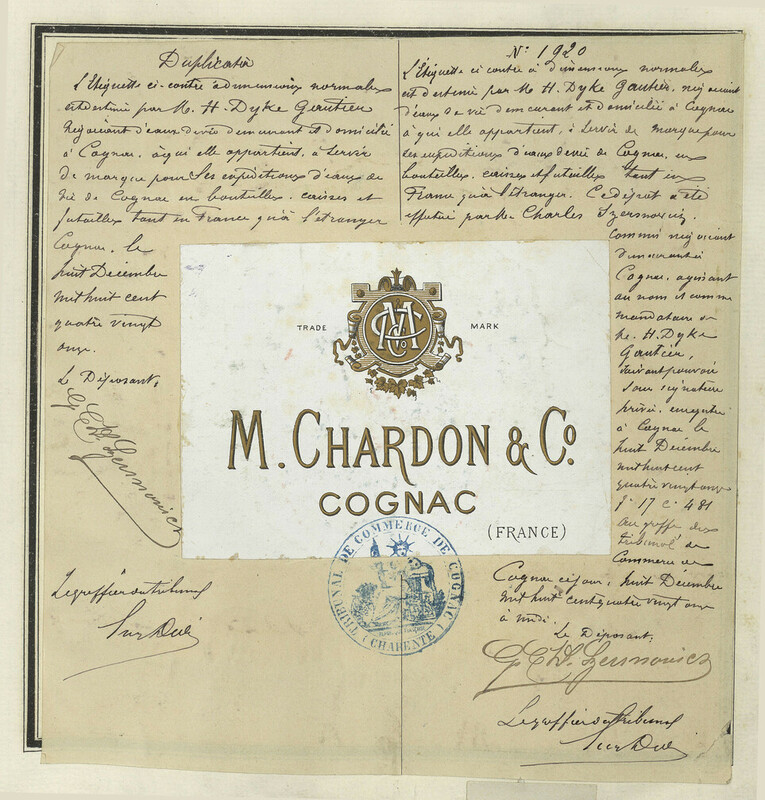 Duplicata
L'Etiquette ci-contre à dimensions normales
est destinée par M. H. Dyke Gautier
Négociant d'eaux de vie demeurant et domicilié
à Cognac, à qui elle appartient, à servir
de marque pour ses expéditions d'eaux de
vie de Cognac en bouteilles, caisses et
futailles tant en France qu'à l'étranger
Cognac, le
huit Décembre
mil huit cent
quatre vingt
onze.
Le Déposant,
Le greffier du tribunal
No: 1920
L'Etiquette ci contre à dimensions normales
est destinée par M. H. Dyke Gautier, négociant
d'eaux de vie demeurant et domicilié à Cognac
à qui elle appartient, à servir de marque pour
ses expéditions d'eaux de vie de Cognac en
bouteilles, caisses et futailles tant en
France qu'à l'étranger. Ce dépôt a été
effectué par M. Charles
Commis négociant
demeurant à
Cognac, agissant
au nom et comme
mandataire de
M. H. Dyke
Gautier,
suivant pouvoir
sous signature
privée, enregistré
à Cognac le
huit Décembre
mil huit cent
quatre vingt onze
fo 17 c. 481
au greffe du
tribunal de
Commerce de
Cognac ce jour, huit Décembre
mil huit cent quatre vingt onze
à midi.
Le Déposant,
Le greffier du tribunal
TRADE MARK
M. CHARDON & Co.
COGNAC
(FRANCE)
TRIBUNAL DE COMMERCE DE COGNAC
(CHARENTE)